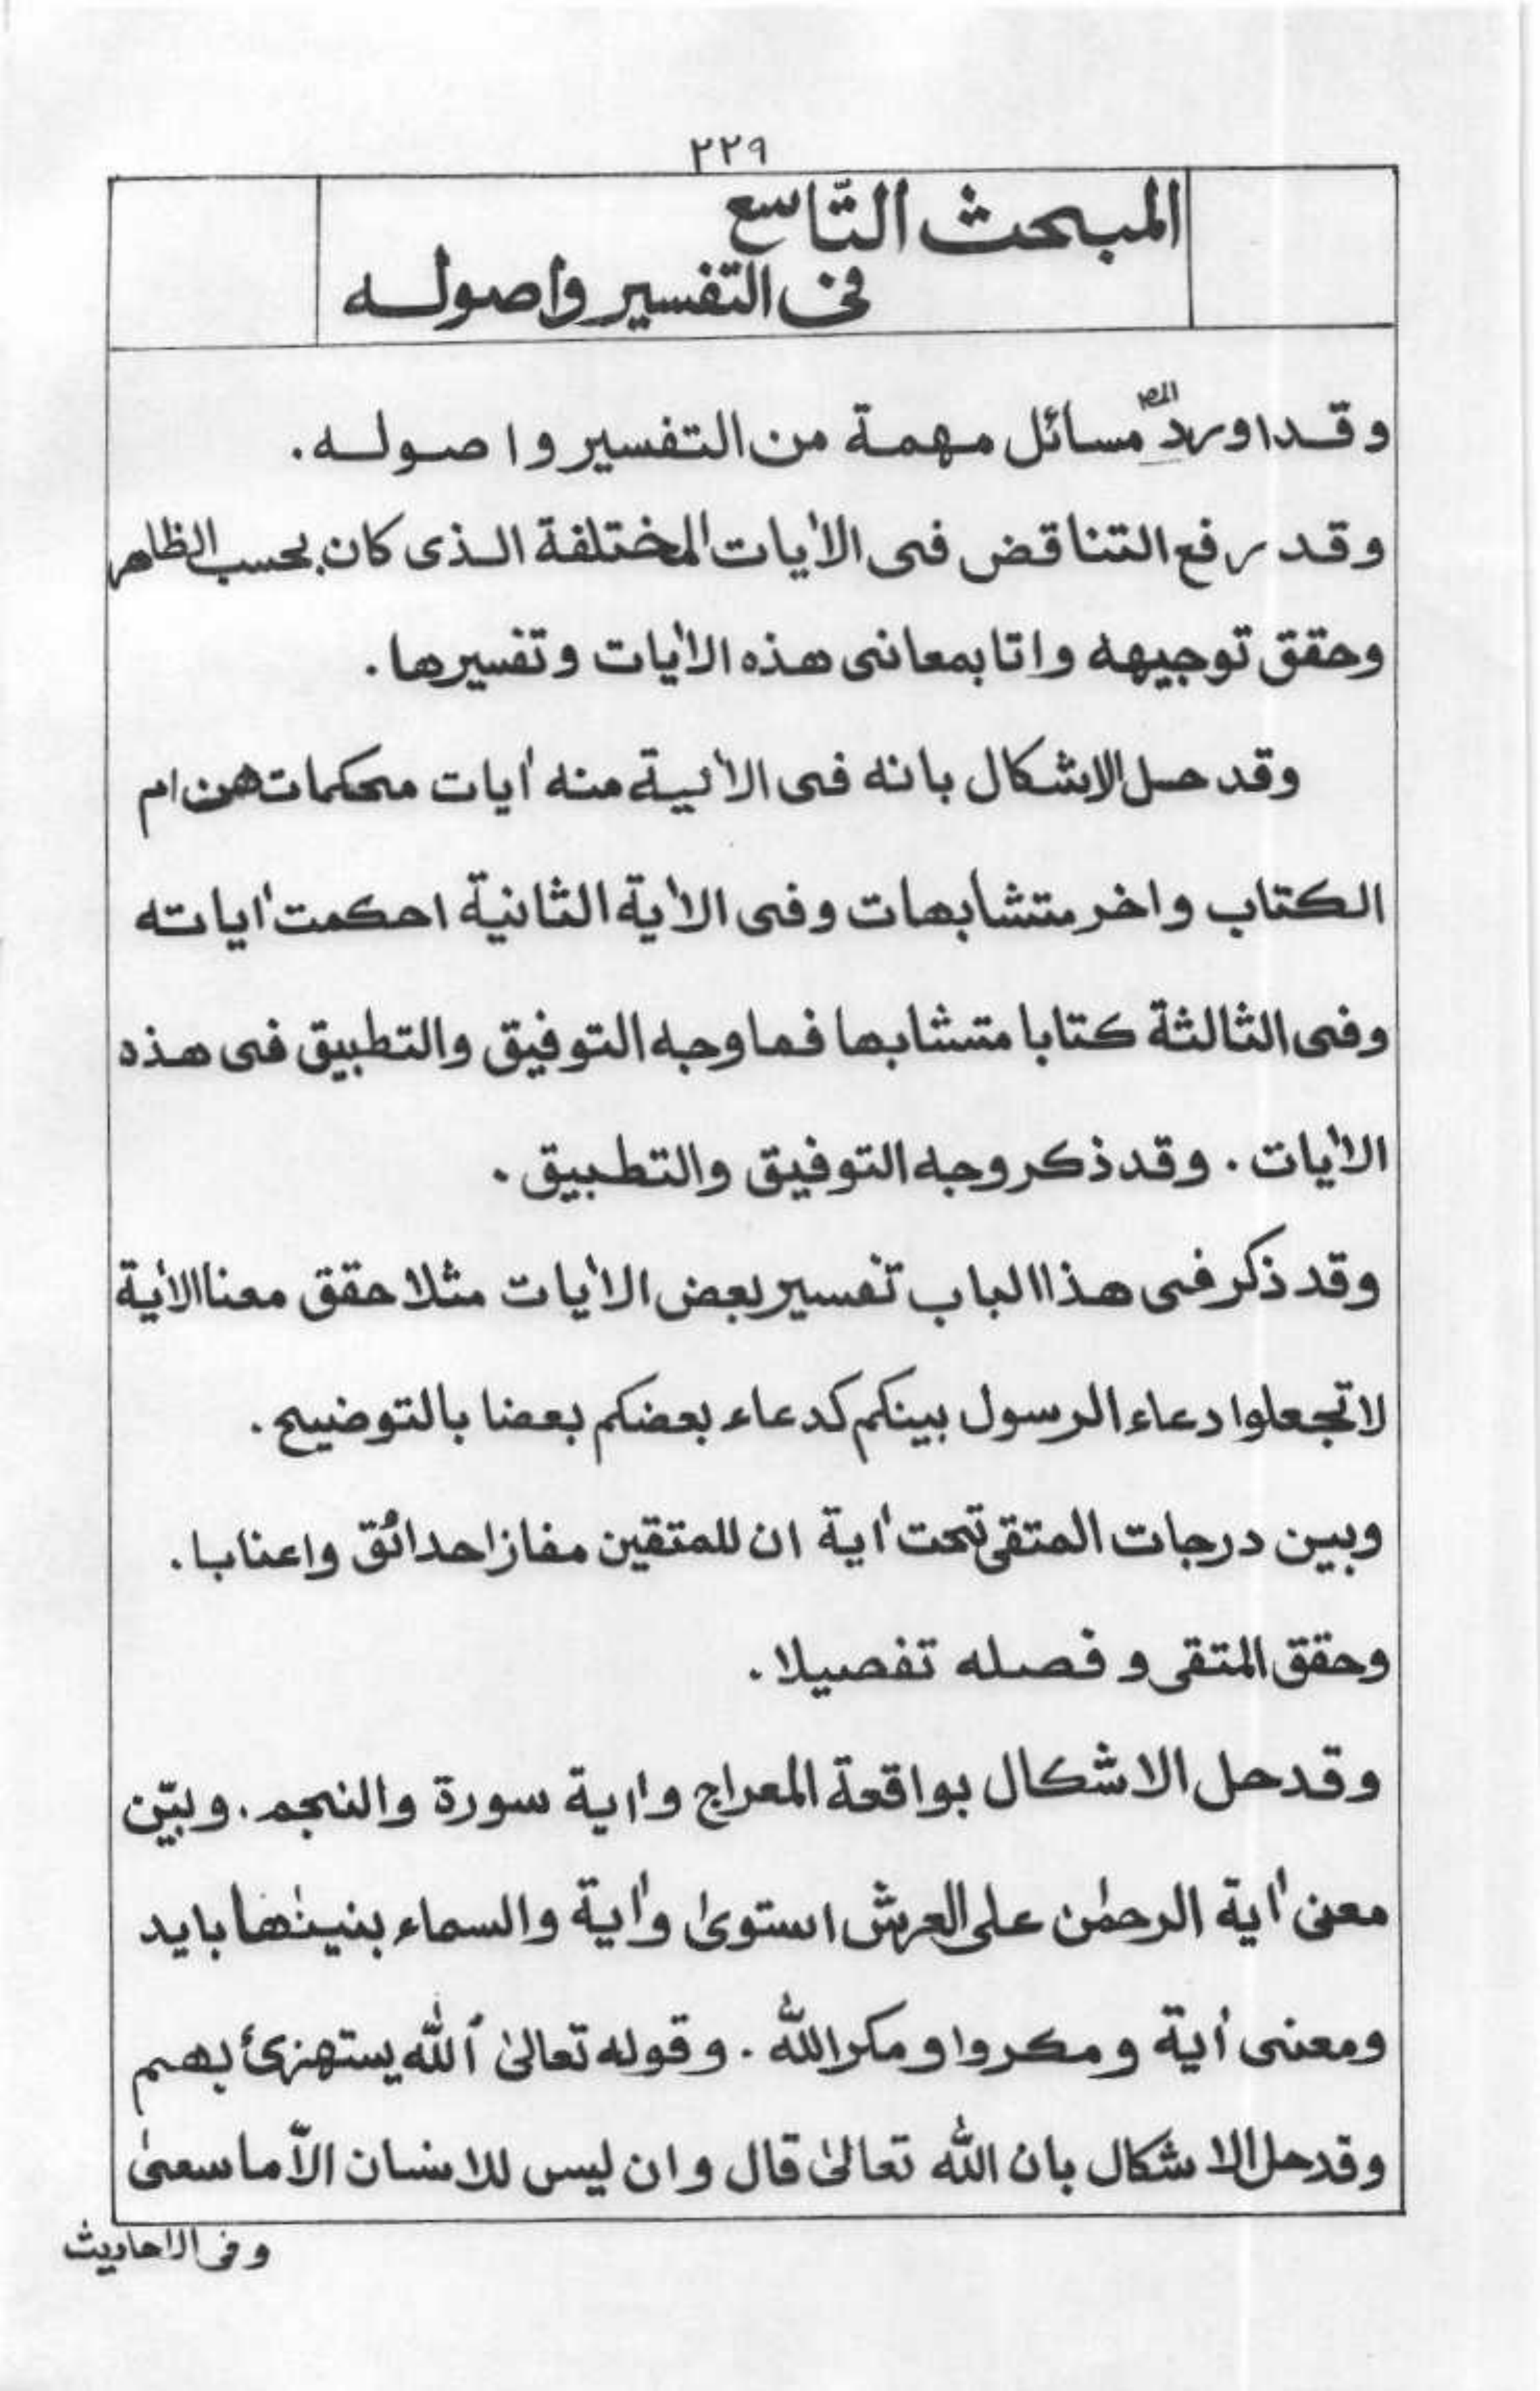 ٢٢٩
المبحث التّاسع
فى التّفسير واصوله
المص
وقد اورد مسائل مهمة من التفسير واصوله.
وقد رفع التناقض فى الاٰيات المختلفة الذى كان بحسب الظاهر
وحقق توجيهه واتا بمعانى هذه الاٰيات وتفسيرها.
وقد حل الاشكال بانه فى الاٰية منه اٰيات محكمات هن ام
الكتاب واخر متشابهات وفى الاٰية الثانية احكمت اٰياته
وفى الثالثة كتابا متشابها فما وجه التوفيق والتطبيق فى هذه
الاٰيات. وقد ذكر وجه التوفيق والتطبيق.
وقد ذكر فى هذا الباب تفسير بعض الاٰيات مثلا حقق معنا الاٰية
لا تجعلوا دعاء الرسول بينكم كدعاء بعضكم بعضا بالتوضيح.
وبين درجات المتقى تحت اٰية ان للمتقين مفازا حدائق واعنابا.
وحقق المتقى وفصله تفصيلا.
وقد حل الاشكال بواقعة المعراج واٰية سورة والنجم. وبيّن
معنى اٰية الرحمٰن على العرش استوىٰ واٰية والسماء بنينٰها بايد
ومعنى اٰية ومكروا ومكر الله. وقوله تعالىٰ اَللّٰه يستهزئ بهم
وقد حل الاشكال بان الله تعالىٰ قال وان ليس للانسان الّا ما سعىٰ
وفى الاحاديث